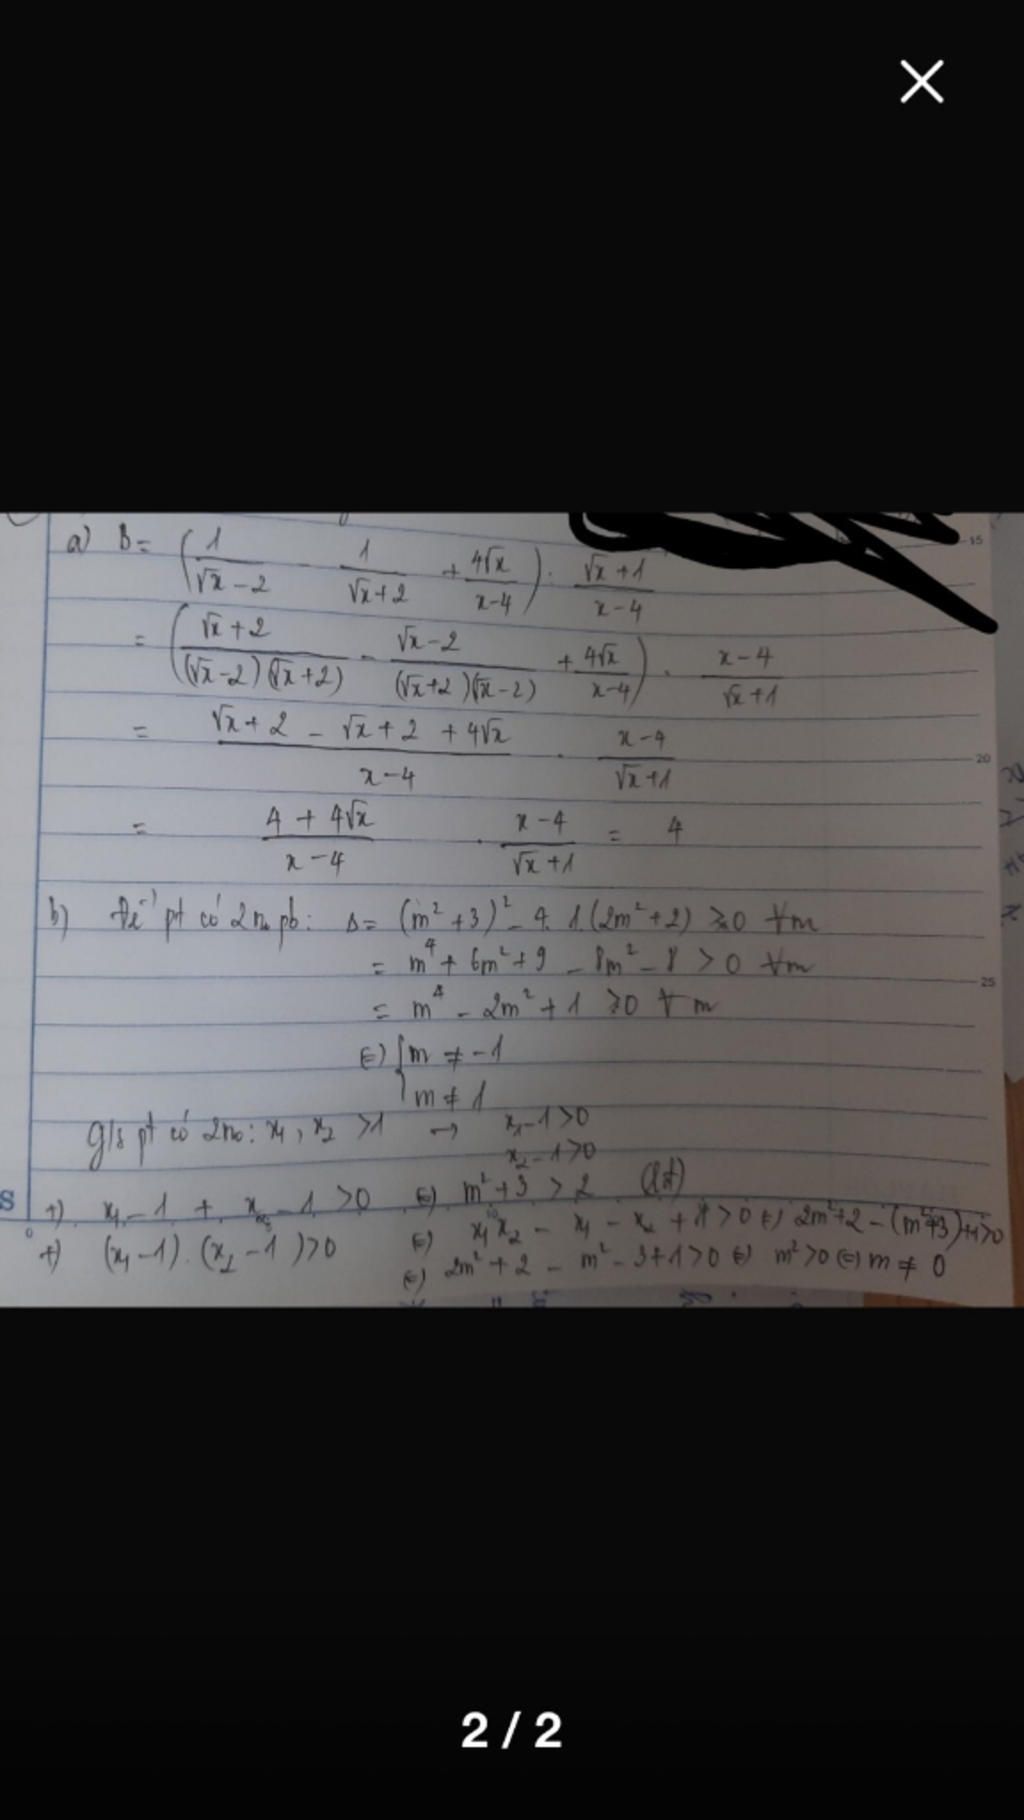 a) B = (1/(√x - 2) - 1/(√x + 2) + 4√x/(x - 4)) : (√x + 1)/(x - 4)
= ((√x + 2)/((√x - 2)(√x + 2)) - (√x - 2)/((√x + 2)(√x - 2)) + 4√x/(x - 4)) . (x - 4)/(√x + 1)
= (√x + 2 - √x + 2 + 4√x)/(x - 4) . (x - 4)/(√x + 1)
= (4 + 4√x)/(x - 4) . (x - 4)/(√x + 1) = 4
b) Để pt có 2 no pb: Δ = (m² + 3)² - 4. 1. (2m² + 2) > 0 ∀m
= m⁴ + 6m² + 9 - 8m² - 8 > 0 ∀m
= m⁴ - 2m² + 1 > 0 ∀m
(=) { m ≠ -1
m ≠ 1
g/s pt có 2 no: x₁, x₂ > 1 → x₁ - 1 > 0
x₂ - 1 > 0
+) x₁ - 1 + x₂ - 1 > 0 (=) m² + 3 > 2 (lđ)
+) (x₁ - 1) . (x₂ - 1) > 0 (=) x₁x₂ - x₁ - x₂ + 1 > 0 (=) 2m² + 2 - (m² + 3) + 1 > 0
(=) 2m² + 2 - m² - 3 + 1 > 0 (=) m² > 0 (=) m ≠ 0
15
20
25
S
0
10
2 / 2